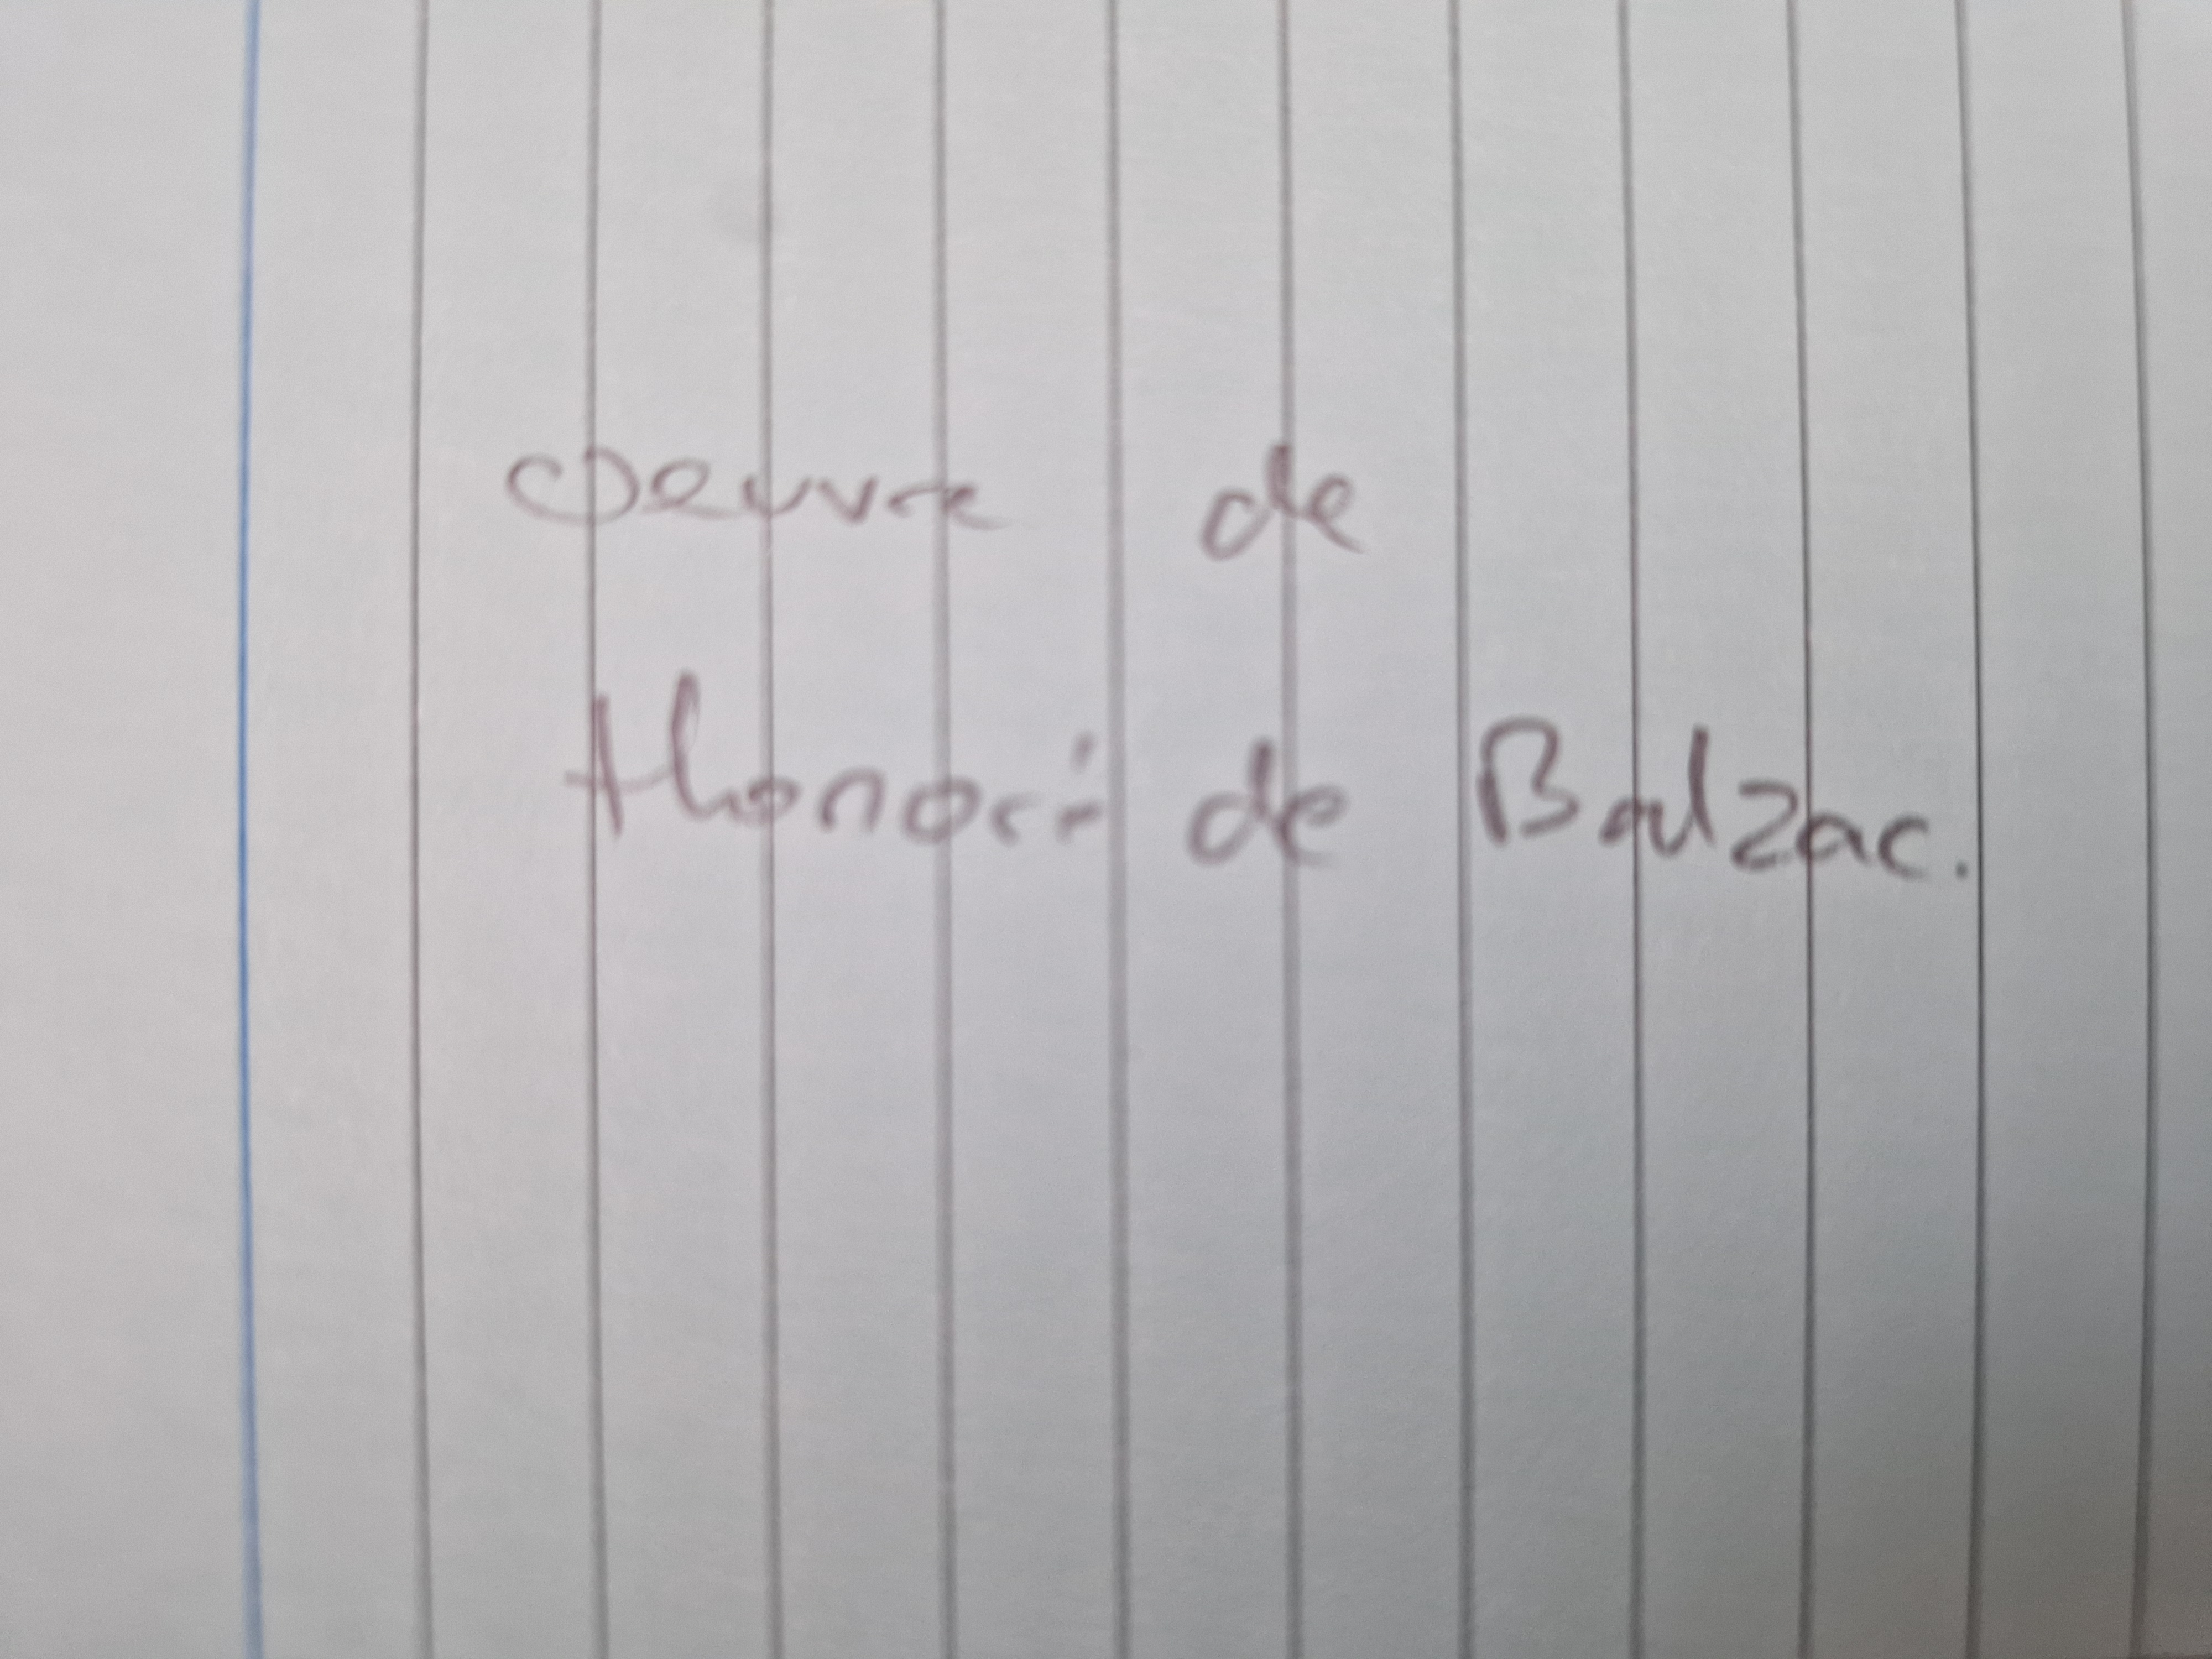 Oeuvre de
Honoré de Balzac.